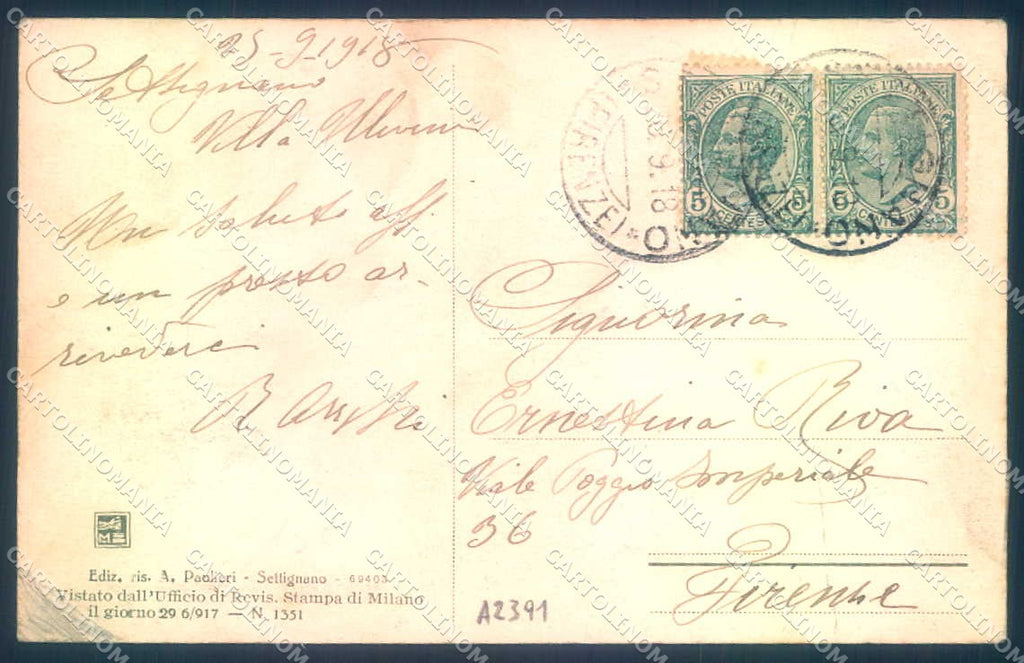 25-9-1918
Settignano
Villa
Un saluto aff.
e un presto ar-
rivederci
R
POSTE ITALIANE
5 CENTESIMI 5
POSTE ITALIANE
5 CENTESIMI 5
(FIRENZE)
9.18
Signorina
Ernestina Riva
Viale Poggio Imperiale
36
Firenze
Ediz. ris. A. Paoleri - Settignano - 69403
Vistato dall'Ufficio di Revis. Stampa di Milano
il giorno 29 6/917 — N. 1351
A2391
CARTOLINOMANIA